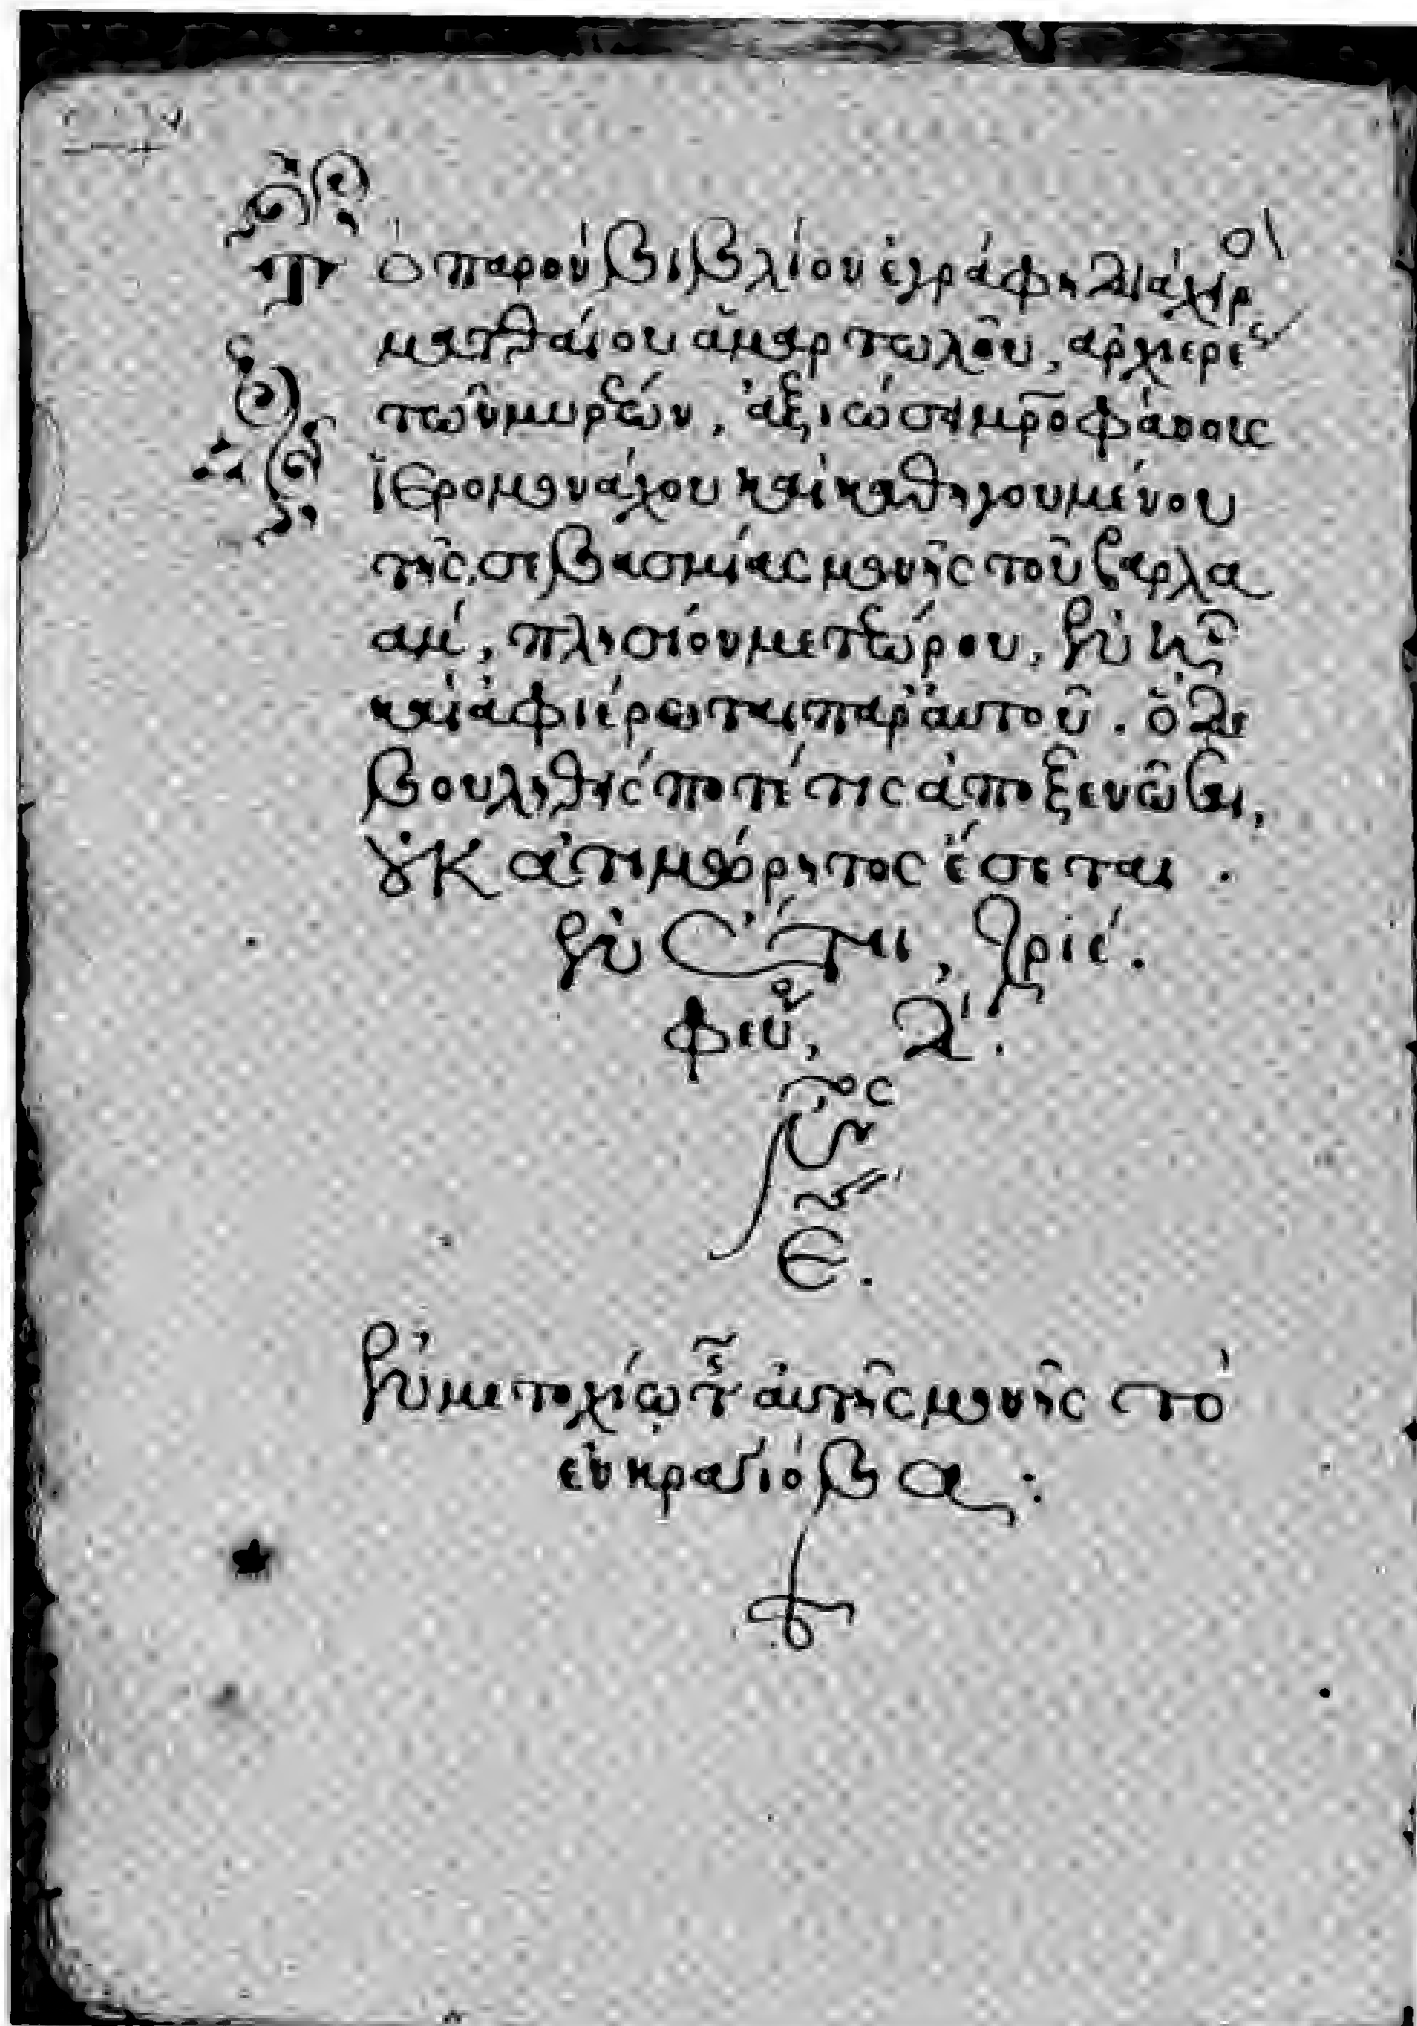 Τὸ παρὸν βιβλίον ἐγράφη διὰ χειρ
ματθαίου ἁμαρτωλοῦ, ἀρχιερε
τῶν μυρέων, ἀξιώσει
ἱερομονάχου καὶ καθηγουμένου
τῆς σεβασμίας μονῆς τοῦ βαρλα
ὰμ, πλησίον μετεώρου, ἐν ᾗ
καὶ ἀφιέρωται παρ' αὐτοῦ. ὁ δὲ
βουληθείς ποτέ τις ἀποξενῶσαι,
οὐκ ἀτιμώρητος ἔσεται.
ἐν ἔτει, ζριε.
φευ, δ.
ἐν μετοχίῳ τῆς αὐτῆς μονῆς στὸ